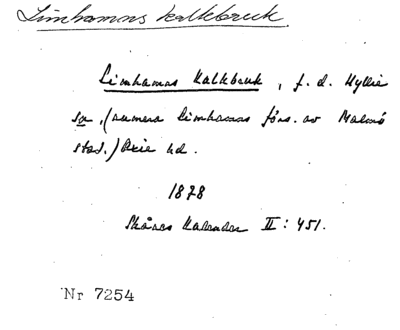 Limhamns kalkbruk.
Limhamns Kalkbruk, f. d. Hyllie
sn, (numera Limhamns förs. av Malmö
stad.) Oxie hd.
1878
Skånes Kalender II: 451.
Nr 7254